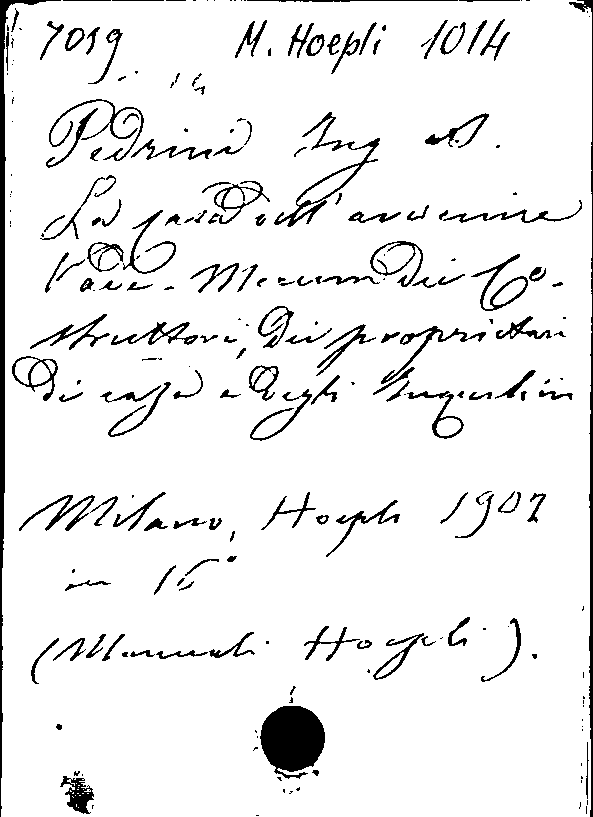 7019 M. Hoepli 1014
Pedrini Ing A.
La casa dell' avvenire
Vade-Mecum dei Co-
struttori, Dei proprietari
Di case e Degli Inquilini
Milano, Hoepli 1902
in 16°
(Manuali Hoepli).